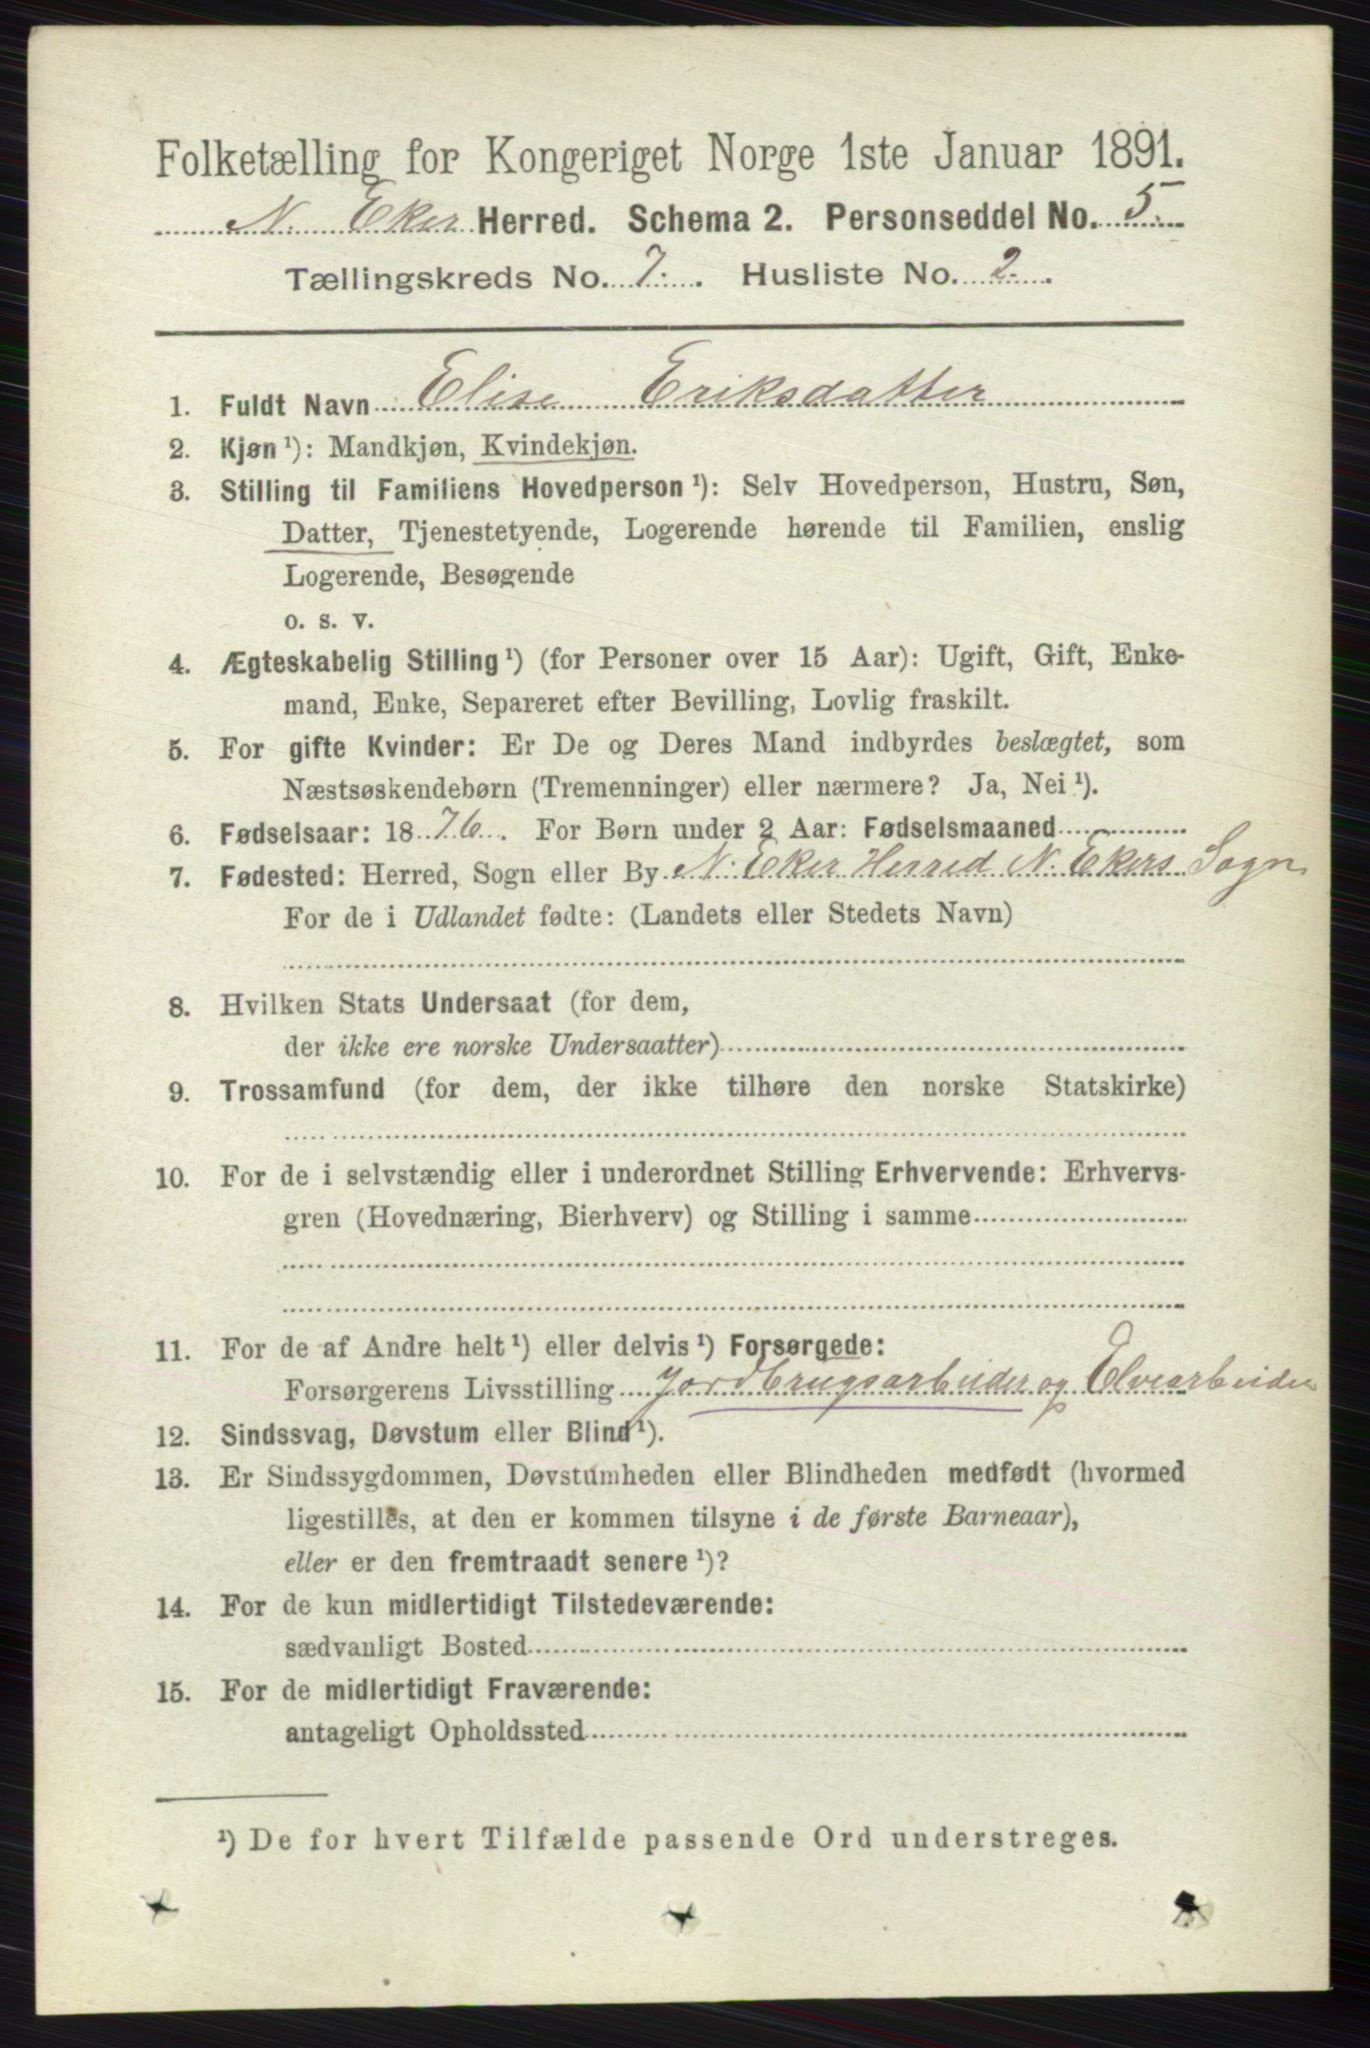 Folketælling for Kongeriget Norge 1ste Januar 1891.
N. Eker Herred. Schema 2. Personseddel No. 5.
Tællingskreds No. 7. Husliste No. 2.
1. Fuldt Navn Elise Eriksdatter
2. Kjøn ¹): Mandkjøn, Kvindekjøn.
3. Stilling til Familiens Hovedperson ¹): Selv Hovedperson, Hustru, Søn,
Datter, Tjenestetyende, Logerende hørende til Familien, enslig
Logerende, Besøgende
o. s. v.
4. Ægteskabelig Stilling ¹) (for Personer over 15 Aar): Ugift, Gift, Enke-
mand, Enke, Separeret efter Bevilling, Lovlig fraskilt.
5. For gifte Kvinder: Er De og Deres Mand indbyrdes beslægtet, som
Næstsøskendebørn (Tremenninger) eller nærmere? Ja, Nei ¹).
6. Fødselsaar: 1876. For Børn under 2 Aar: Fødselsmaaned
7. Fødested: Herred, Sogn eller By N. Eker Herred N. Ekers Sogn
For de i Udlandet fødte: (Landets eller Stedets Navn)
8. Hvilken Stats Undersaat (for dem,
der ikke ere norske Undersaatter)
9. Trossamfund (for dem, der ikke tilhøre den norske Statskirke)
10. For de i selvstændig eller i underordnet Stilling Erhvervende: Erhvervs-
gren (Hovednæring, Bierhverv) og Stilling i samme
11. For de af Andre helt ¹) eller delvis ¹) Forsørgede:
Forsørgerens Livsstilling Jordbrugsarbeider og Elvearbeider
12. Sindssvag, Døvstum eller Blind ¹).
13. Er Sindssygdommen, Døvstumheden eller Blindheden medfødt (hvormed
ligestilles, at den er kommen tilsyne i de første Barneaar),
eller er den fremtraadt senere ¹)?
14. For de kun midlertidigt Tilstedeværende:
sædvanligt Bosted
15. For de midlertidigt Fraværende:
antageligt Opholdssted
¹) De for hvert Tilfælde passende Ord understreges.